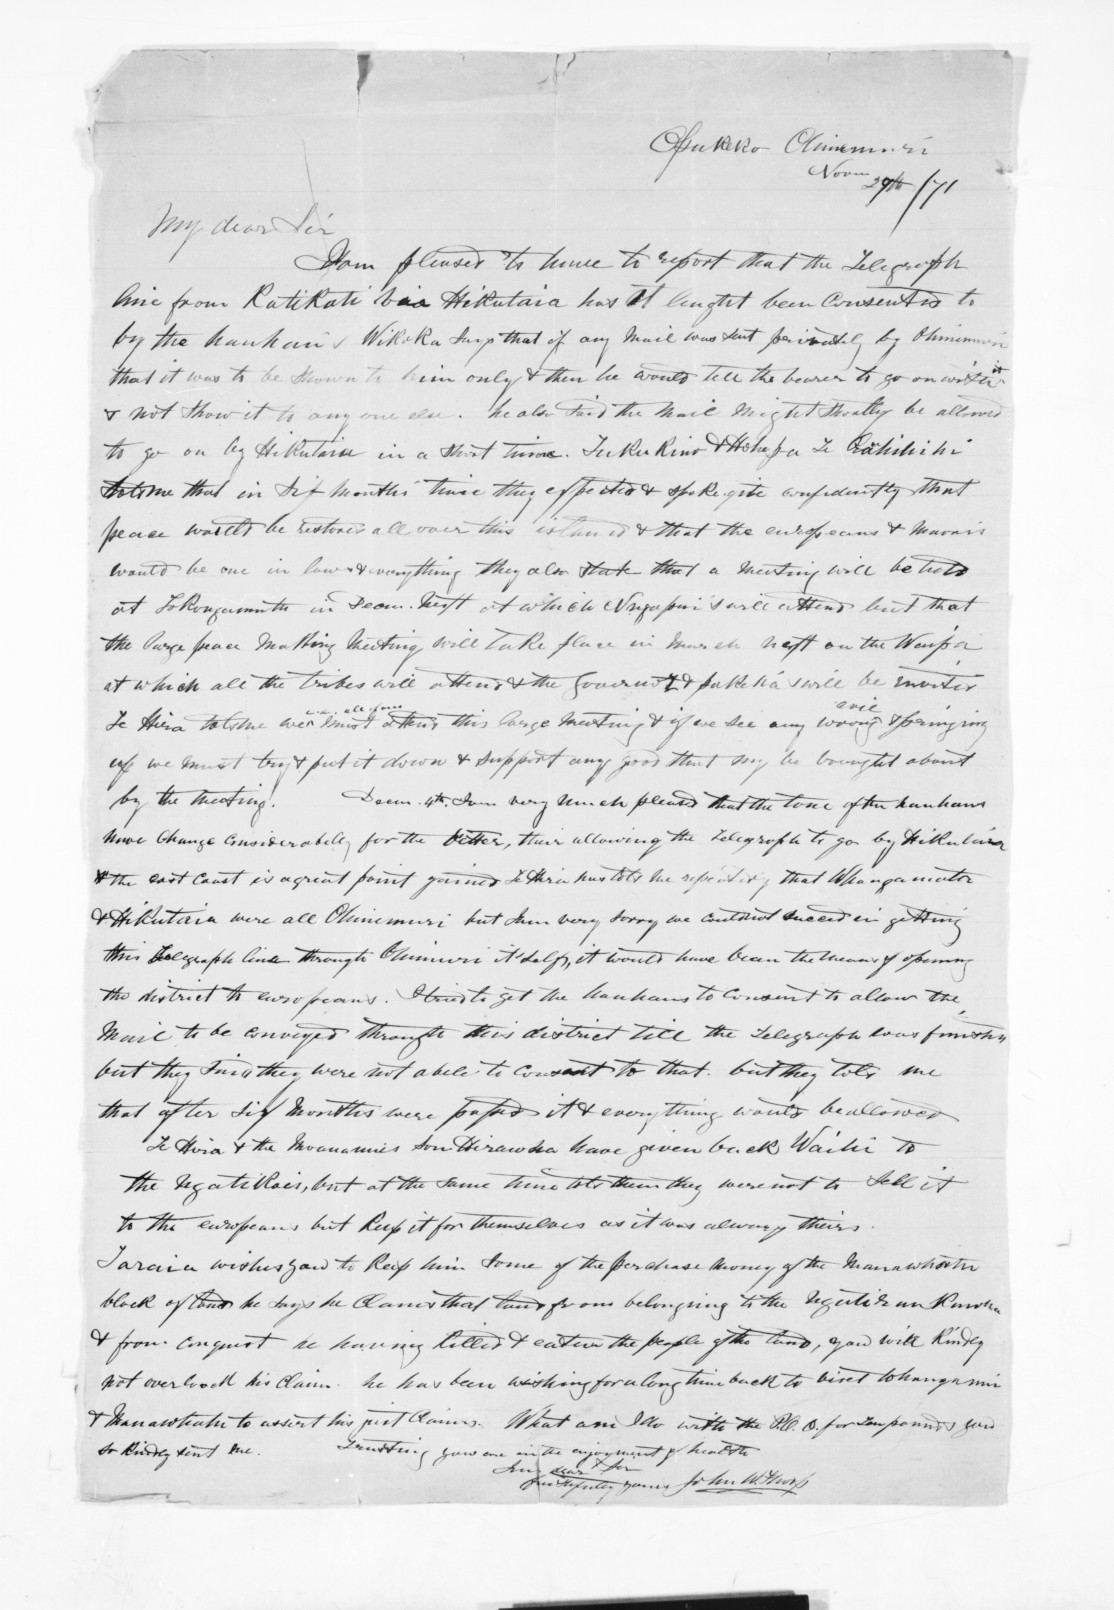 Opukeko Ohinemuri
Novm 29th/71
My dear Sir
I am pleased to have to report that the Telegraph
line from KatiKati via Hikutaia has at lenght been Consented to
by the hauhau's WiKoKa says that if any Mail was sent privately by Ohinemuri
that it was to be shown to him only & then he would tell the bearer to go on with it
& not show it to any one else. he also said the Mail Might shortly be allowed
to go on by Hikutaia in a short time. TukuKino & Hohepa Te Rahihihi
told me that in Six months time they expected & spoke quite confidently that
peace would be restored all over this island & that the europeans & Maoris
would be one in laws & everything they also state that a Meeting will be held
at Tokangamutu in Decm. Next at which Ngapuis will attend but that
the large peace Making Meeting will take place in March next on the Waipa
at which all the tribes will attend & the Governor & pakeha's will be invited
Te Hira told me we must attend this large Meeting & if we see any wrong evil springing
up we must try & put it down & support any good that my be bought about
by the Meeting. Decm. 4th. I am very much pleased that the tone of the hauhaus
have Change Considerabely for the better, their allowing the Telegraph to go by Hikutaia
& the east Coast is a great point gained Te Hira has told me repeatedly that Whangamata
& Hikutaia were all Ohinemuri but I am very sorry we could not suceed in getting
this Telegraph line through Ohinemuri it self, it would have been the means of opening
the district to europeans. I tried to get the hauhaus to Consent to allow the
Mail to be conveyed through this district till the Telegraph was finished
but they said they were not abele to consent to that. but they told me
that after Six Months were passed it & everything would be allowed
Te Hira & the Moananuis son Hirawha have given back Waihi to
the NgatiKois, but at the same time told them they were not to Sell it
to the europeans but Keep it for themselves as it was always theirs.
Taraia wishes you to Keep him Some of the perchase money of the Manawhatu
block of land he says he Claims that land from belonging to the
& from conquest he having Killed & eaten the people of the land, you will Kindly
not overlook his Claim. he has been wishing for a long time back to viset
& Manawhatu to assert his just Claims. What am I do with the P.O.O. for Ten pounds you
so Kindly sent me. Trusting you are in the enjoyment of health
I am dear Sir
yours John W. Thorp